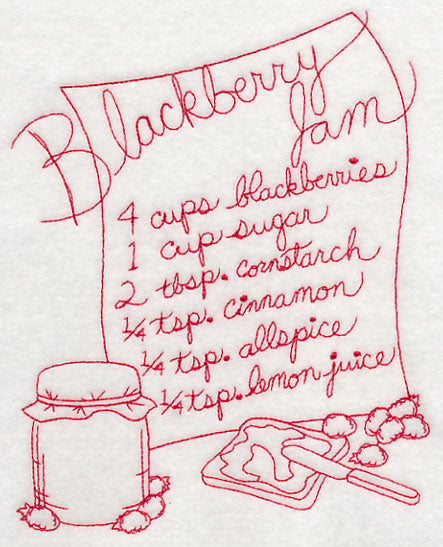 Blackberry
Jam
4 cups blackberries
1 cup sugar
2 tbsp. cornstarch
¼ tsp. cinnamon
¼ tsp. allspice
¼ tsp. lemon juice